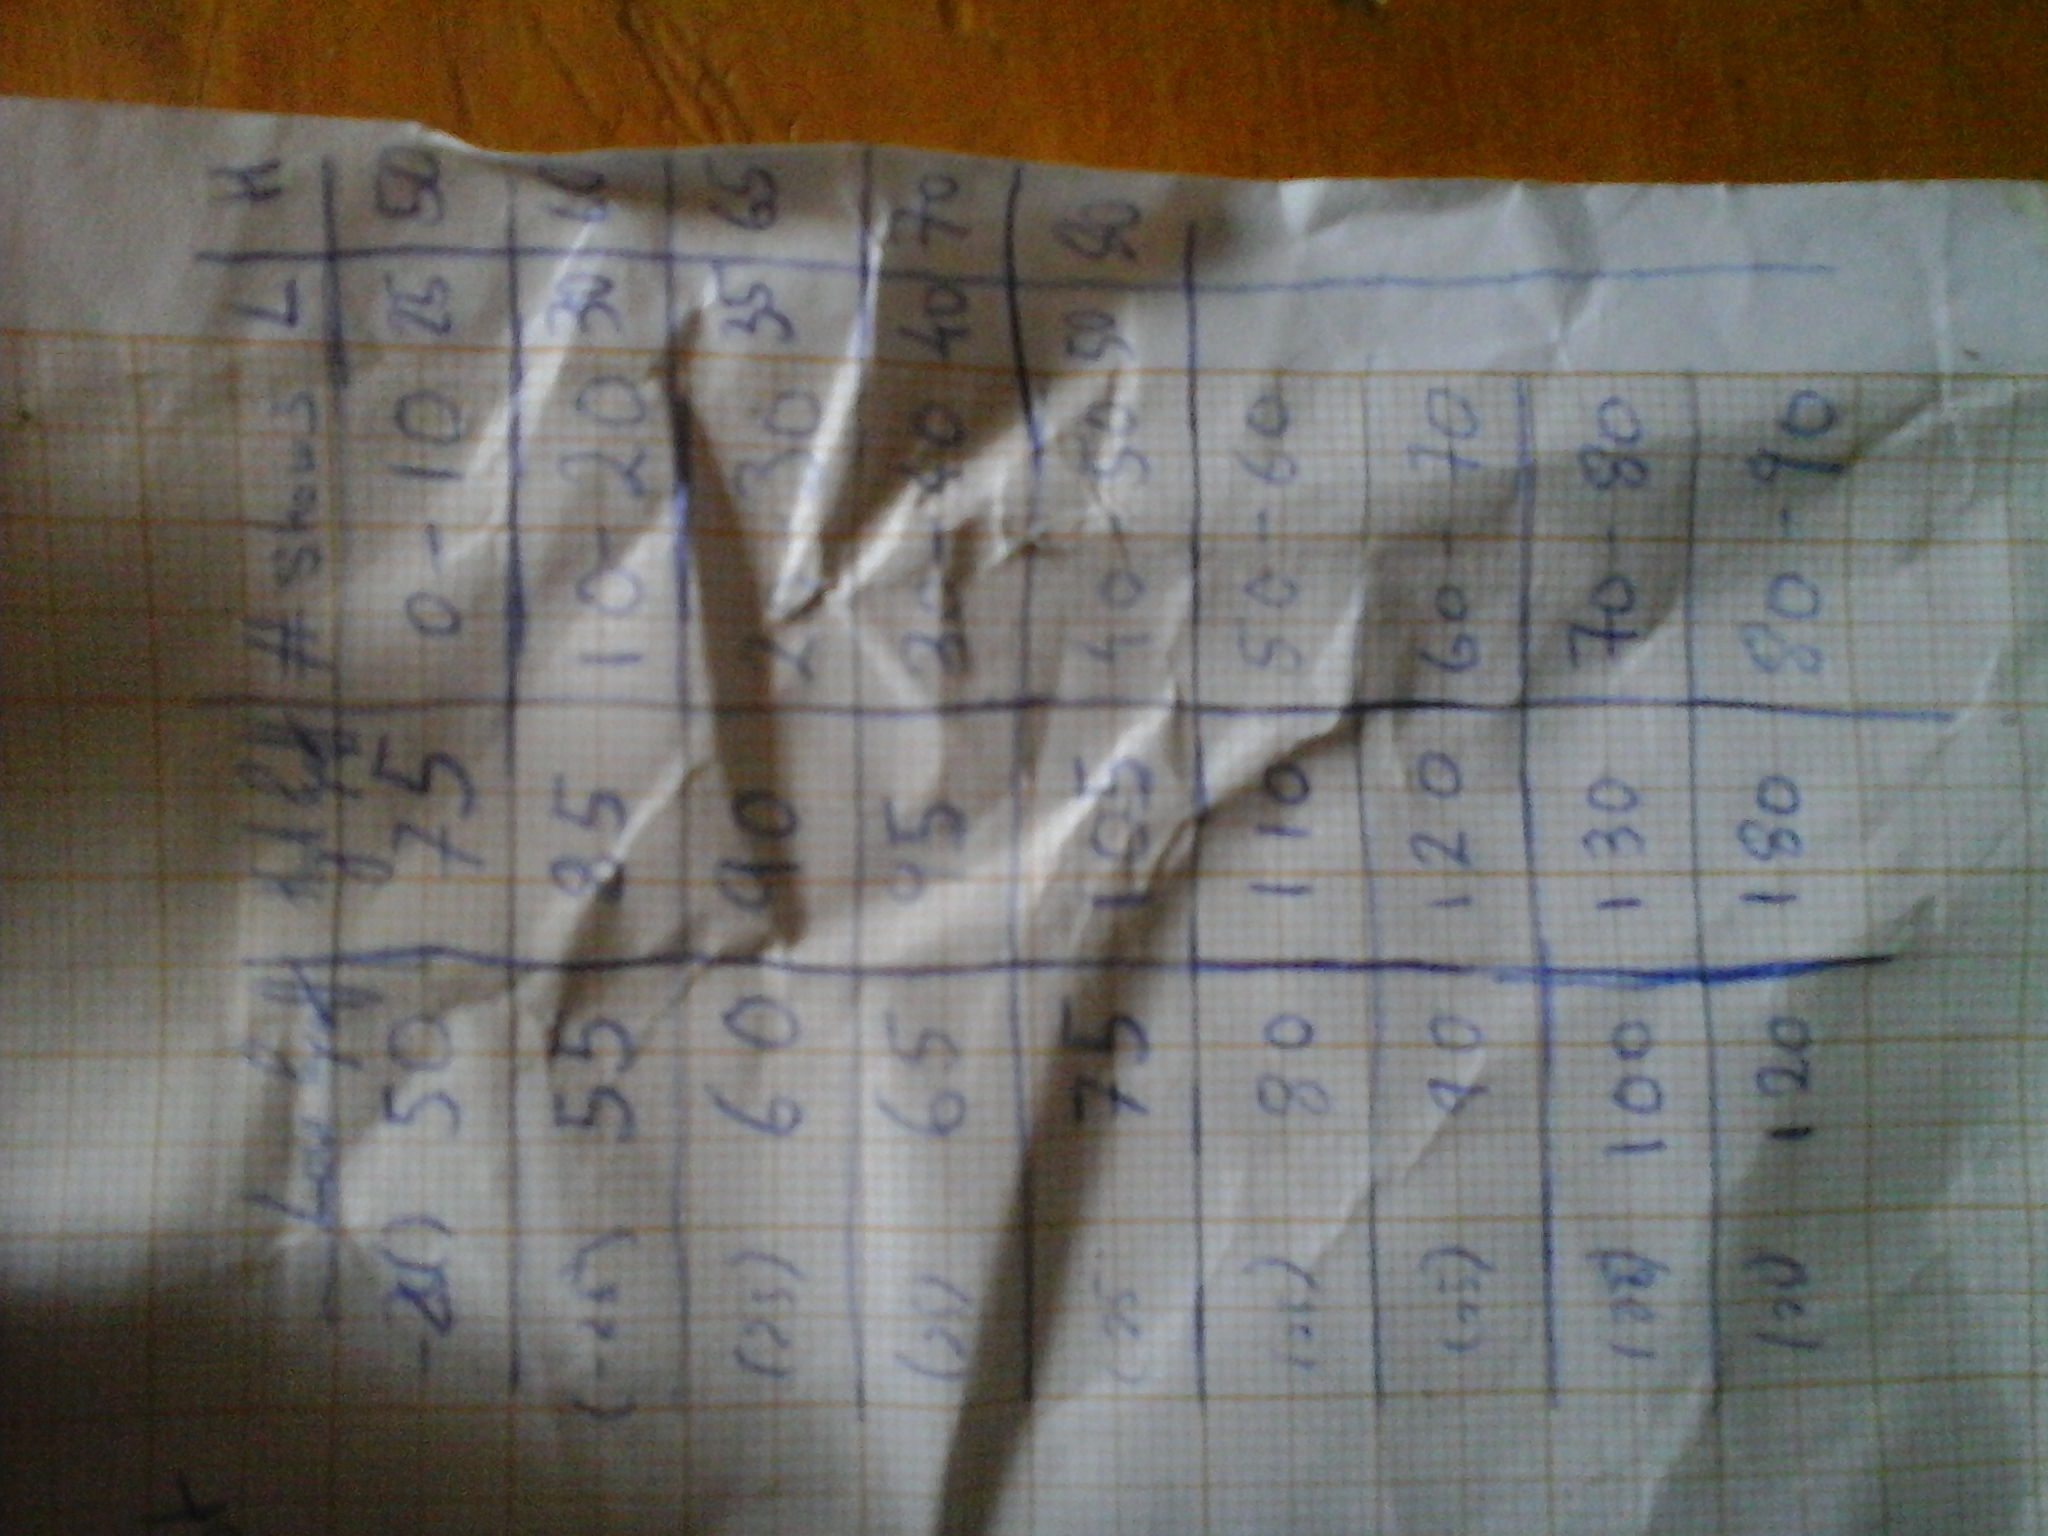 # Shows L H
50 75 0-10 25 50
(-25) 55 85 10-20 30 60
(25) 60 90 30 35 65
(25) 65 95 30-40 40 70
(25 75 105 40-50 50 80
80 110 50-60
(25) 90 120 60-70
(25) 100 130 70-80
120 180 80-90